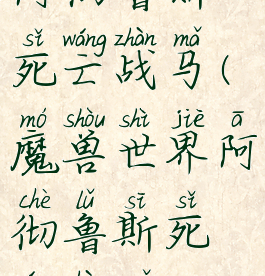 sǐ wáng zhàn mǎ
死亡战马（
mó shòu shì jiè ā
魔兽世界阿
chè lǔ sī sǐ
彻鲁斯死